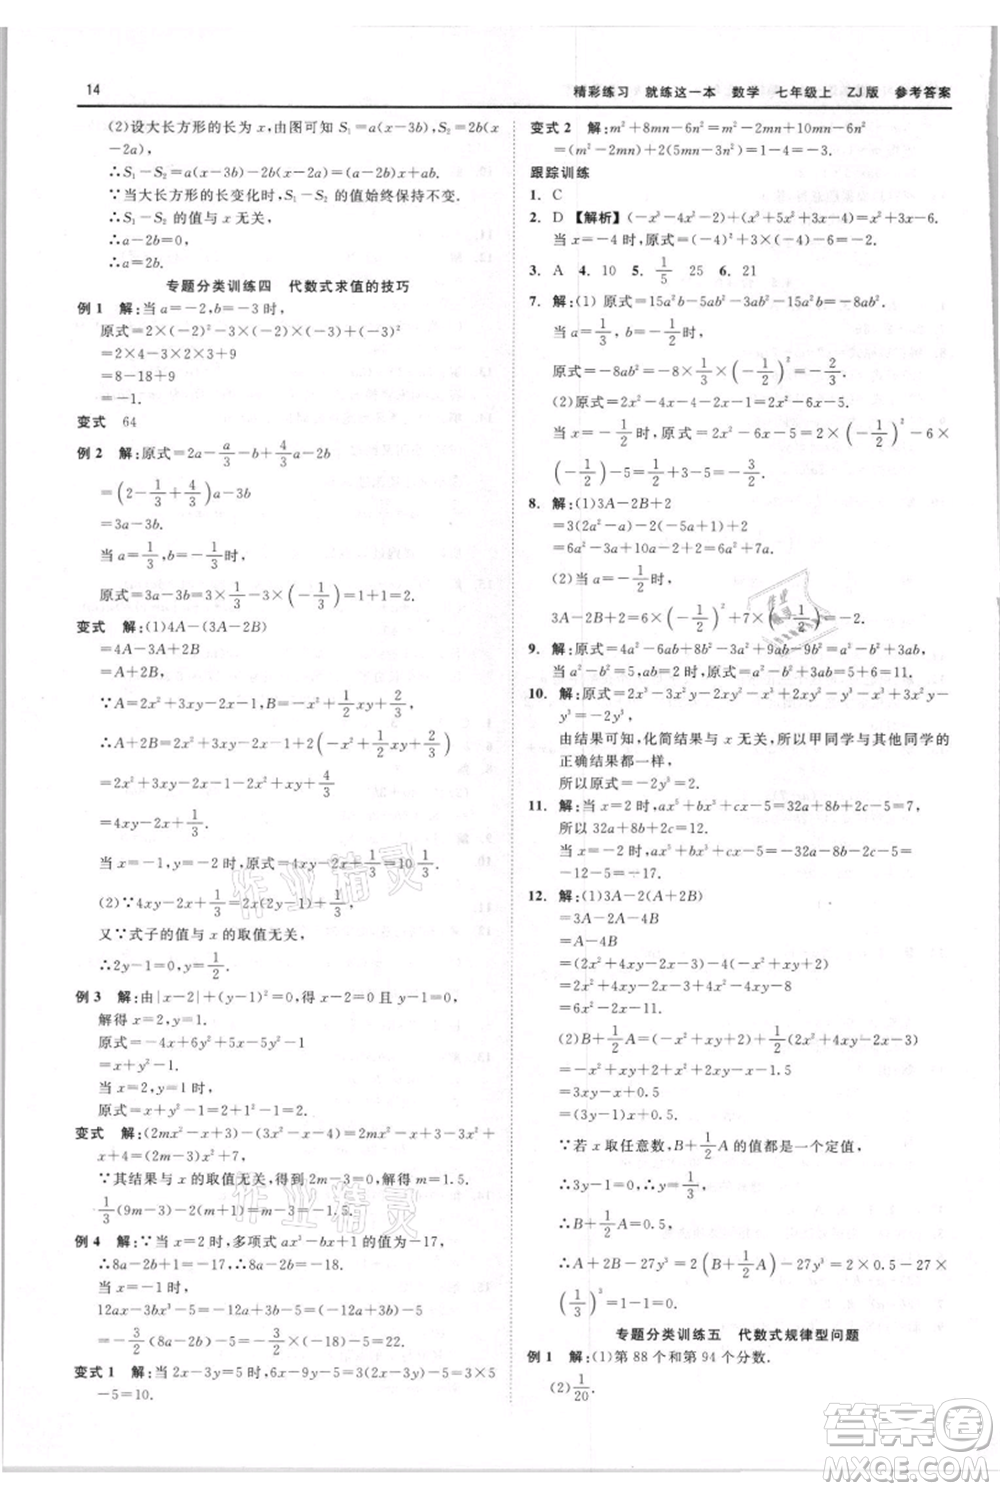 14
精彩练习 就练这一本 数学 七年级上 ZJ版 参考答案
(2)设大长方形的长为 x,由图可知 S₁=a(x-3b),S₂=2b(x
-2a),
∴S₁-S₂=a(x-3b)-2b(x-2a)=(a-2b)x+ab,
∵当大长方形的长变化时,S₁-S₂的值始终保持不变.
∴S₁-S₂的值与 x 无关,
∴a-2b=0,
∴a=2b.
专题分类训练四 代数式求值的技巧
例 1 解:当 a=-2,b=-3时,
原式=2×(-2)²-3×(-2)×(-3)+(-3)²
=2×4-3×2×3+9
=8-18+9
=-1.
变式 64
例 2 解:原式=2a-a/3-b+4/3a-2b
=(2-1/3+4/3)a-3b
=3a-3b.
当 a=1/3,b=-1/3时,
原式=3×1/3-3×(-1/3)=2.
变式 解:(1)4A-(3A-2B)
=4A-3A+2B
=A+2B,
∵A=2x²+3xy-2x-1,B=-x²+1/2xy+2/3,
∴A+2B=2x²+3xy-2x-1+2(-x²+1/2xy+2/3)
=2x²+3xy-2x-1-2x²+xy+4/3
=4xy-2x+1/3.
当 x=-1,y=-2时,原式=4xy-2x+1/3=10 1/3.
(2)∵4xy-2x+1/3=2x(2y-1)+1/3,
又∵式子的值与 x 的取值无关,
∴2y-1=0,∴y=1/2.
例 3 解:由|x-2|+(y-1)²=0,
解得 x=2,y=1.
原式=-4x+y²+5x-1
=x+y²-1.
当 x=2,y=1时,
原式=x+y²-1=2+1-1=2.
变式 解:(2mx²-x+3)-(3x²-x-4)=2mx²-x+3-3x²
+x+4=(2m-3)x²+7,
∵其结果与 x 的取值无关,得到 2m-3=0,得 m=1.5.
-1/3(9m-3)+(2m-1)=-3m+1+2m-1=-m=-1.5.
例 4 解:∵当 x=2时,多项式 ax³-bx+1的值为-17,
∴8a-2b+1=-17,∴8a-2b=-18.
当 x=-1时,
12ax-3bx³-5=-12a+3b-5=-3/2(8a-2b)-5
=-3/2×(-18)-5=22.
变式 1 解:当 2x-3y=5时,6x-9y-5=3(2x-3y)-5=3×5
-5=10.
变式 2 解:m²+8mn-6n²=m²-2mn+10mn-6n²
=(m²-2mn)-2(3n²-5mn)=1-4=-3.
跟踪训练
1. C
2. D【解析】(-x³-4x²-2)+(x³+5x²+3x-4)=x²+3x-6.
当 x=-4时,原式=(-4)²+3×(-4)-6=-2.
3. A 4. 10 5. 1/5 6. 21
7. 解:(1)原式=15a²b-5ab²-3ab²-15a²b=-8ab².
当 a=1/3,b=-1/2时,
原式=-8ab²=-8×1/3×(-1/2)²=-2/3.
(2)原式=3x²-6x-x²-5=2x²-6x-5.
当 x=-1/2时,原式=2x²-6x-5=2×(-1/2)²-6×
(-1/2)-5=1/2+3-5=-3/2.
8. 解:(1)3A-2B+2
=3(2a²-a)-2(-5a+1)+2
=6a²-3a+10a-2+2=6a²+7a.
(2)当 a=-1/2时,
3A-2B+2=6×(-1/2)²+7×(-1/2)=-2.
9. 解:原式=4a²-6ab-b²-3a²+9ab=a²-b²+3ab,
当 a²-b²=5,ab=2时,原式=a²-b²+3ab=5+6=11.
10. 解:原式=2x³-3x²y-2xy²-x³+2xy²-x³+3x²y-
y³=-2y³,
由结果可知,化简结果与 x 无关,所以甲同学与其他同学的
正确结果都一样.
所以原式=-2y³.
11. 解:当 x=2时,ax⁵+bx³+cx-5=32a+8b+2c-5=7,
所以 32a+8b+2c=12.
当 x=-2时,ax⁵+bx³+cx-5=-32a-8b-2c-5=
-12-5=-17.
12. 解:(1)3A-2(A+2B)
=3A-2A-4B
=A-4B
=(2x²+4xy-2x-3)-4(-x²+xy-2)
=2x²+4xy-2x-3+4x²-4xy+8
=6x²-2x+5.
(2)B+1/2A=(-x²+xy+2)+1/2(2x²+4xy-2x-3)
=-x²+xy+2+x²+2xy-x-3/2
=3xy-x+0.5
=(3y-1)x+0.5.
∵若 x 取任意数,B+1/2A 的值都是一个定值,
∴3y-1=0,∴y=1/3,
∴B+1/2A=0.5,
∴A+2B-27y³=2(B+1/2A)-27y³=2×0.5-27×
(1/3)³=1-1=0.
专题分类训练五 代数式规律型问题
例 1 解:(1)第 88 个和第 94 个分数.
(2)1/20.
作业精灵
作业精灵
答案圈
MXQE.COM